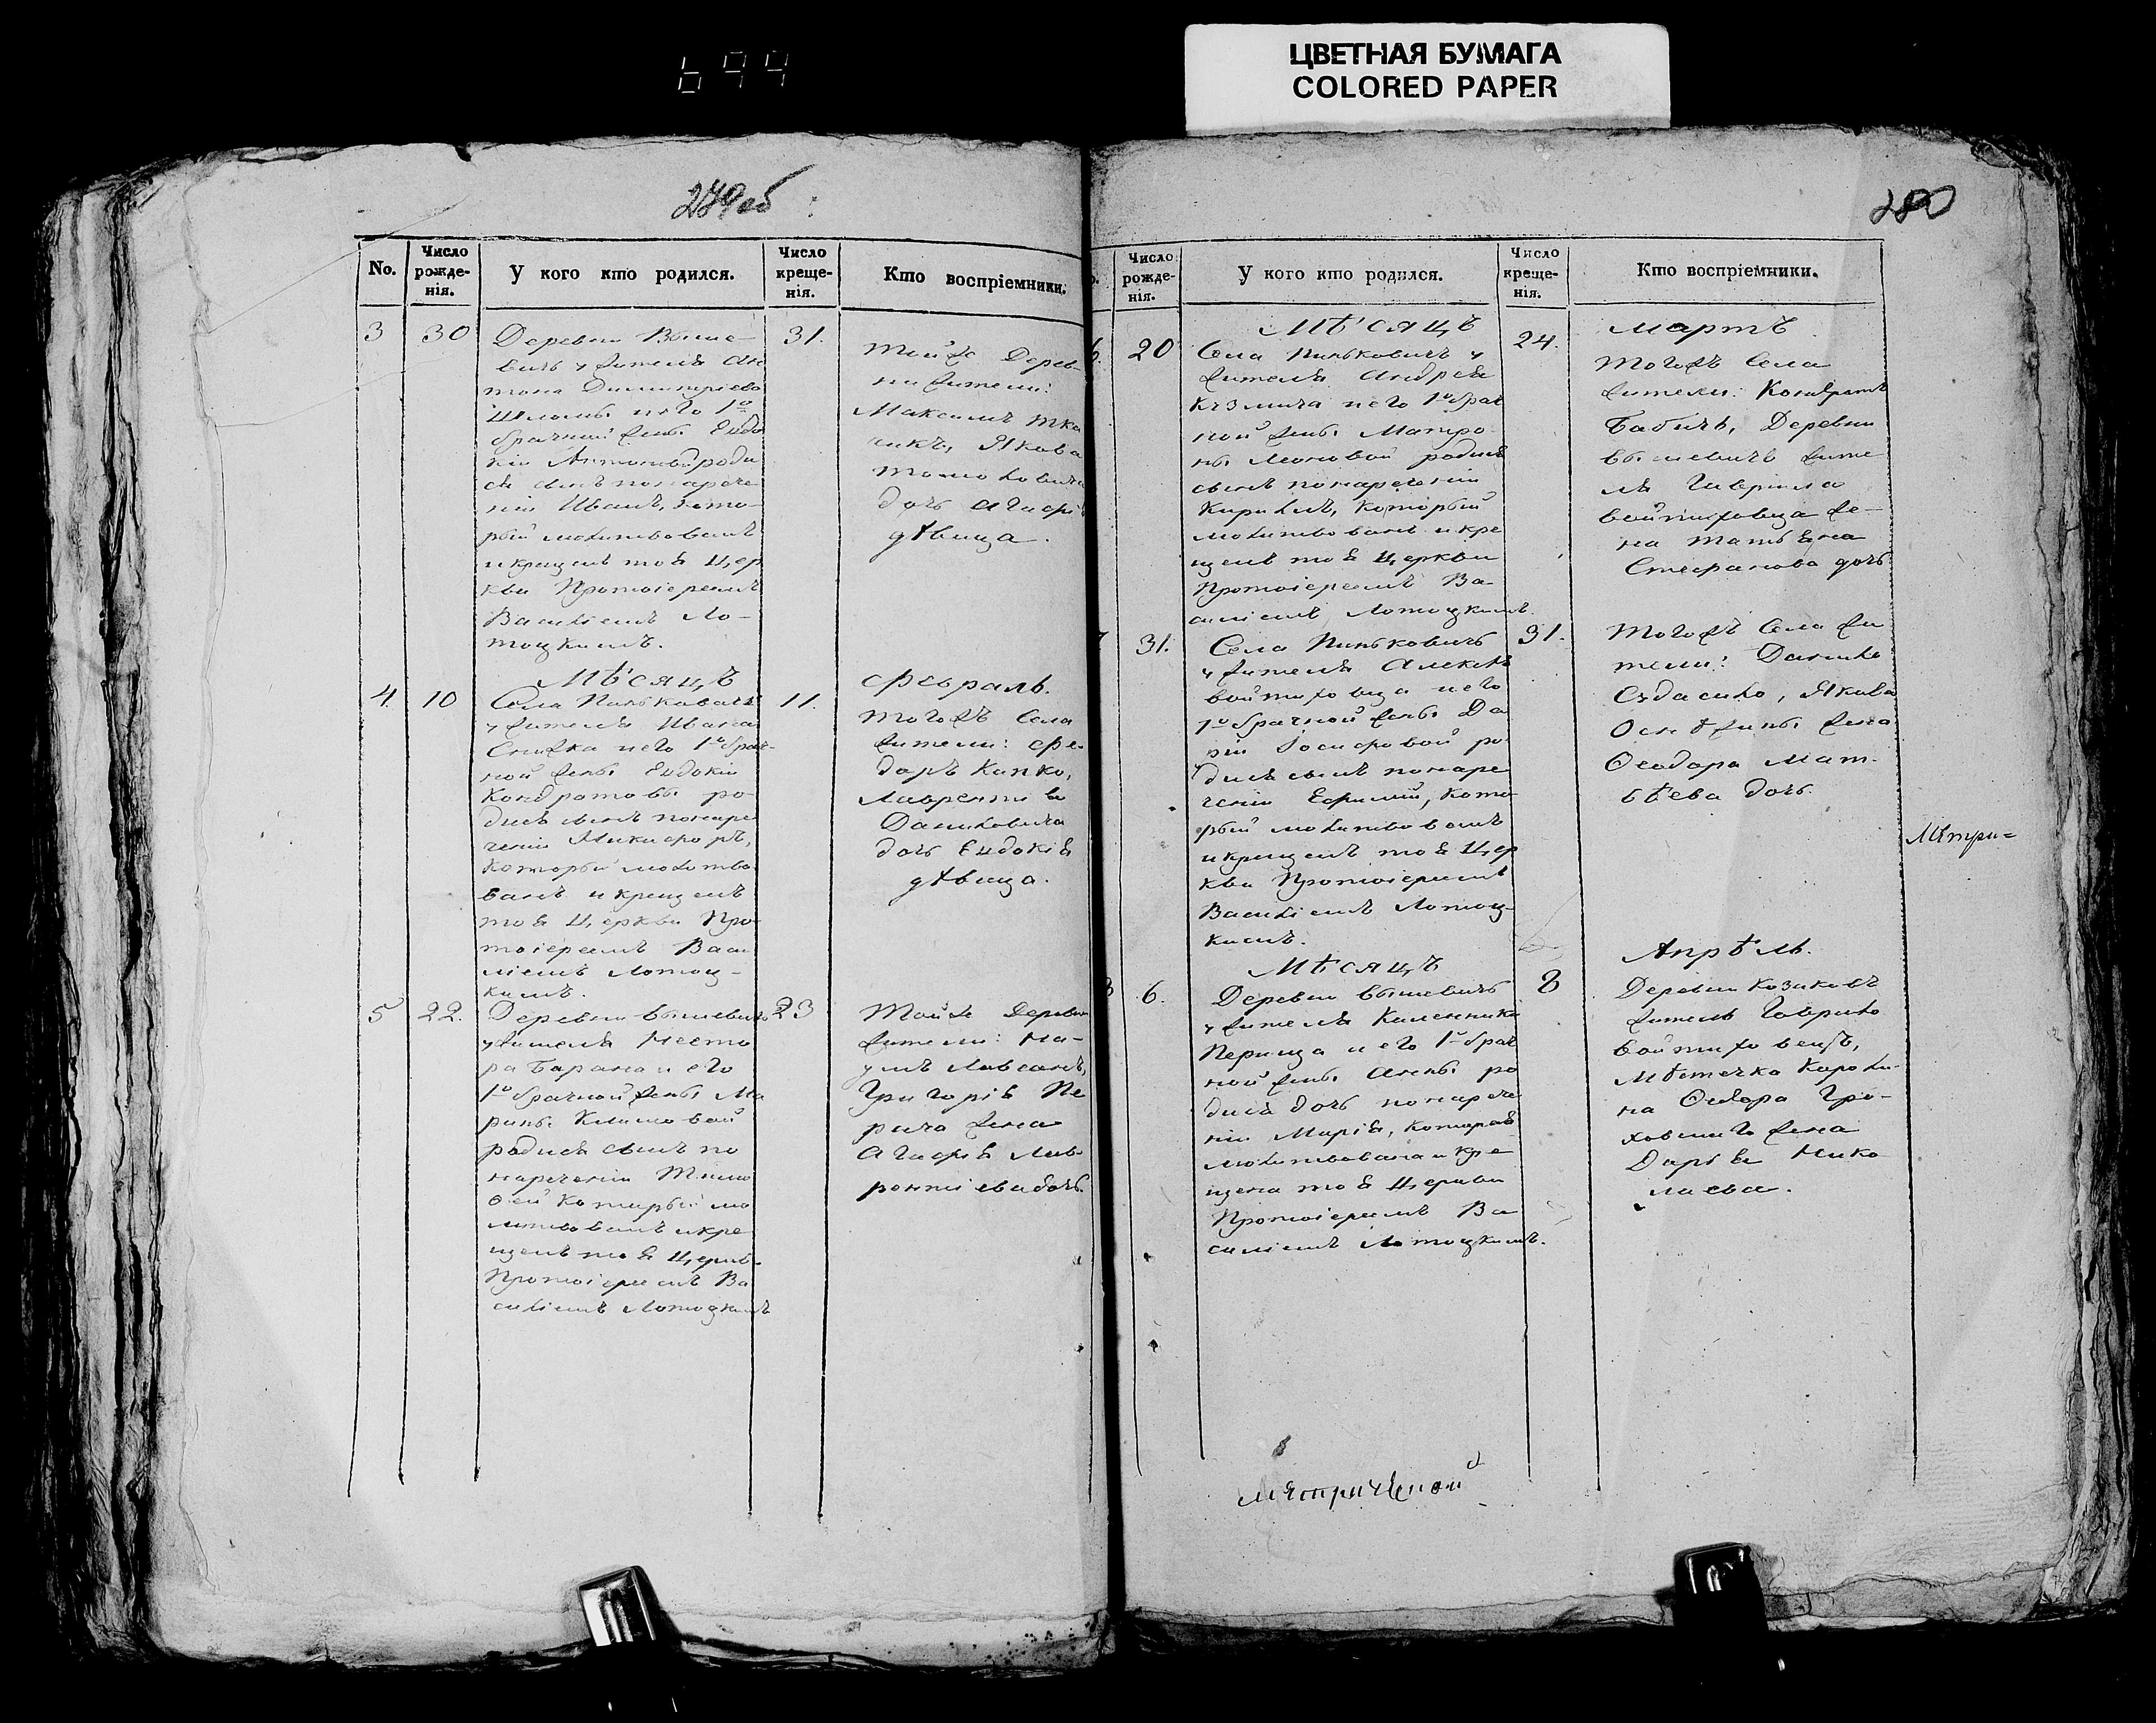 ЦВЕТНАЯ БУМАГА
COLORED PAPER
279об
No.
Число рожде-нія.
У кого кто родился.
Число креще-нія.
Кто воспріемники.
3
30
31.
Деревни Выше-
вичъ у жителя Ан
тона Димитріева
и его 1о
брачной жены Евдо
кіи роди
ся сынъ по нарече
ніи Иванъ, кото-
рый молитвованъ
и крещенъ тоя Цер
кви Протоіереемъ
Василіемъ Ло-
тоцкимъ.
Тойже Дерев-
ни жители:
Максимъ Тка
Якова
дочь Агафія
дѣвица.
Мѣсяцъ
Февраль.
4.
10
11.
Села Пинькович
у жителя Ивана
и его 1о брач-
ной жены Евдокіи
Кондратовы ро-
дися сынъ по наре
ченіи Никифоръ,
который молитво
ванъ и крещенъ
тоя Церкви Про-
тоіереемъ Васи
ліемъ Лотоц-
кимъ.
Тогожъ Села
жители: Фе-
доръ Капко,
Лаврентія
Даниловича
дочь Евдокія
дѣвица.
5
22.
23
Деревни Вышевичъ
у жителя Несто
ра Барана и его
1о брачной жены Ма
рины Климовой
родися сынъ по
нареченіи Тимо
ѳей который мо
литвованъ и кре
щенъ тоя Церкв.
Протоіереемъ Ва
силіемъ Лотоцкимъ
Тойже Деревни
жители: На-
умъ
Григорія Пе
рича жена
Агафія Лав
рентіева дочь.
280
Число рожде-нія.
У кого кто родился.
Число креще-нія.
Кто воспріемники.
Мѣсяцъ
Мартъ
6.
20
24.
Села Пиньковичъ у
жителя Андрея
Кузмича и его 1о брач
ной жены Матро
ны Леоновой родися
сынъ по нареченіи
Кирилъ, который
молитвованъ и кре
щенъ тоя Церкви
Протоіереемъ Ва-
силіемъ Лотоцкимъ.
Тогожъ Села
жители: Кондратъ
Бабичъ, Деревни
Вышевичъ жите
ля Гаврила
Войтиховца же-
на Татьяна
Стефанова дочь
31.
31.
Села Пиньковичъ
у жителя Алексѣя
Войтиховца и его
1о брачной жены Да
ріи Іосифовой ро
дися сынъ по наре
ченіи Ефимій, кото-
рый молитвованъ
и крещенъ тоя Цер
кви Протоіереемъ
Василіемъ Лотоц-
кимъ.
Тогожъ Села жи
тели: Данило
Якова
жена
Ѳеодора Мат-
вѣева дочь.
Метри=
Мѣсяцъ
Апрѣль.
8
6.
8
Деревни Вышевичъ
у жителя Каленника
Перица и его 1о брач
ной жены Анны ро
дися дочь по нарече
ніи Марія, которая
молитвована и кре
щена тоя Церкви
Протоіереемъ Ва
силіемъ Лотоцкимъ.
Деревни Козиковъ
житель Гаврило
Войтиховецъ,
Мѣстечка Кароли-
на Ѳедора Гро-
ховскаго жена
Дарія Нико
лаева.
Метрической